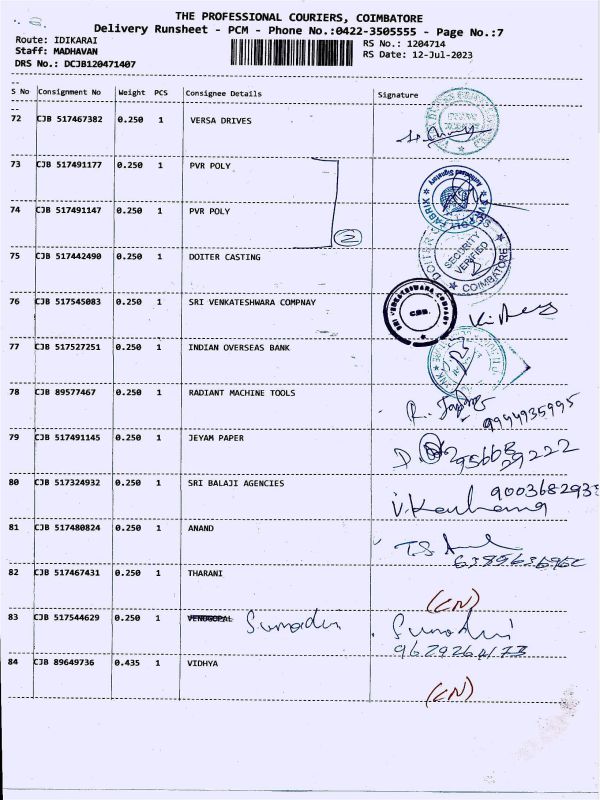 THE PROFESSIONAL COURIERS, COIMBATORE
Delivery Runsheet - PCM - Phone No.:0422-3505555 - Page No.:7
Route: IDIKARAI
RS No.: 1204714
Staff: MADHAVAN
RS Date: 12-Jul-2023
DRS No.: DCJB120471407
S No Consignment No Weight PCS Consignee Details Signature
72 CJB 517467382 0.250 1 VERSA DRIVES
73 CJB 517491177 0.250 1 PVR POLY
74 CJB 517491147 0.250 1 PVR POLY
2
75 CJB 517442490 0.250 1 DOITER CASTING
SECURITY VERIFIED COIMBATORE
76 CJB 517545083 0.250 1 SRI VENKATESHWARA COMPNAY
77 CJB 517527251 0.250 1 INDIAN OVERSEAS BANK
78 CJB 89577467 0.250 1 RADIANT MACHINE TOOLS
9994935995
79 CJB 517491145 0.250 1 JEYAM PAPER
80 CJB 517324932 0.250 1 SRI BALAJI AGENCIES
81 CJB 517480824 0.250 1 ANAND
82 CJB 517467431 0.250 1 THARANI
(CN)
83 CJB 517544629 0.250 1 VENOGOPAL
84 CJB 89649736 0.435 1 VIDHYA
(CN)